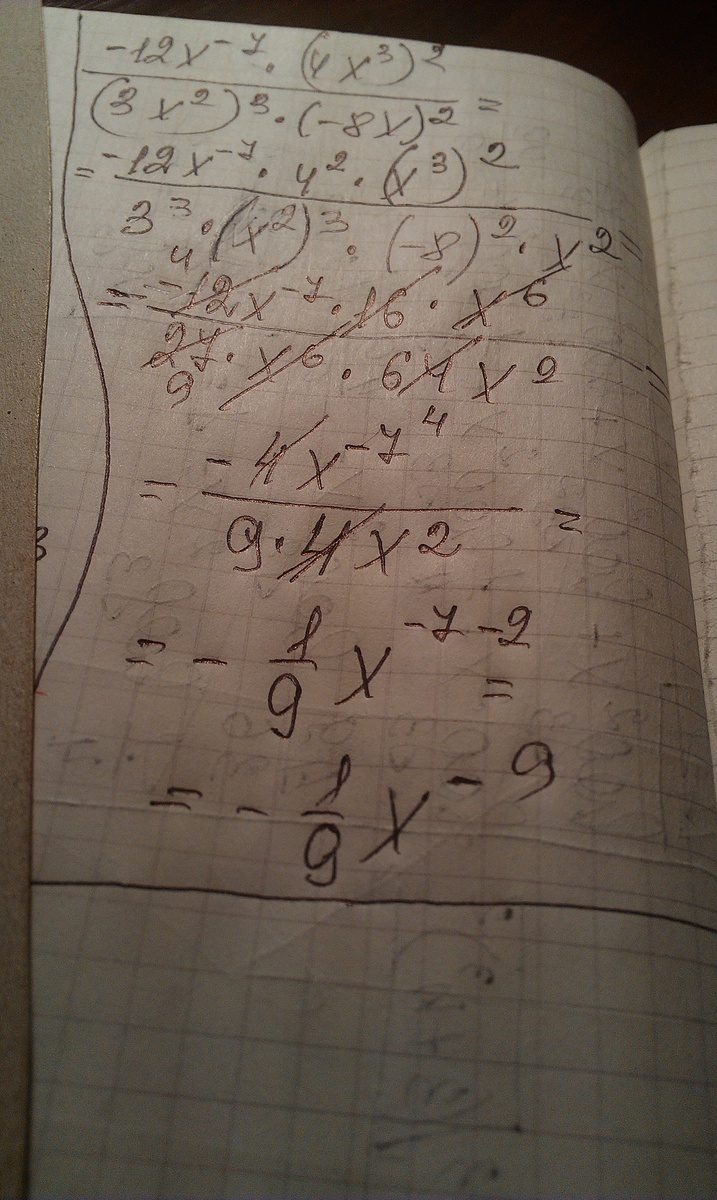 -12x⁻⁷ · (4x³)²
(3x²)³ · (-8x)² =
= -12x⁻⁷ · 4² · (x³)²
3³ · (x²)³ · (-8)² · x² =
4
= -12x⁻⁷ · 16 · x⁶
27 · x⁶ · 64 x² =
9 4
= -4x⁻⁷
9·4x² =
= - 1/9 x⁻⁷⁻² =
= - 1/9 x⁻⁹